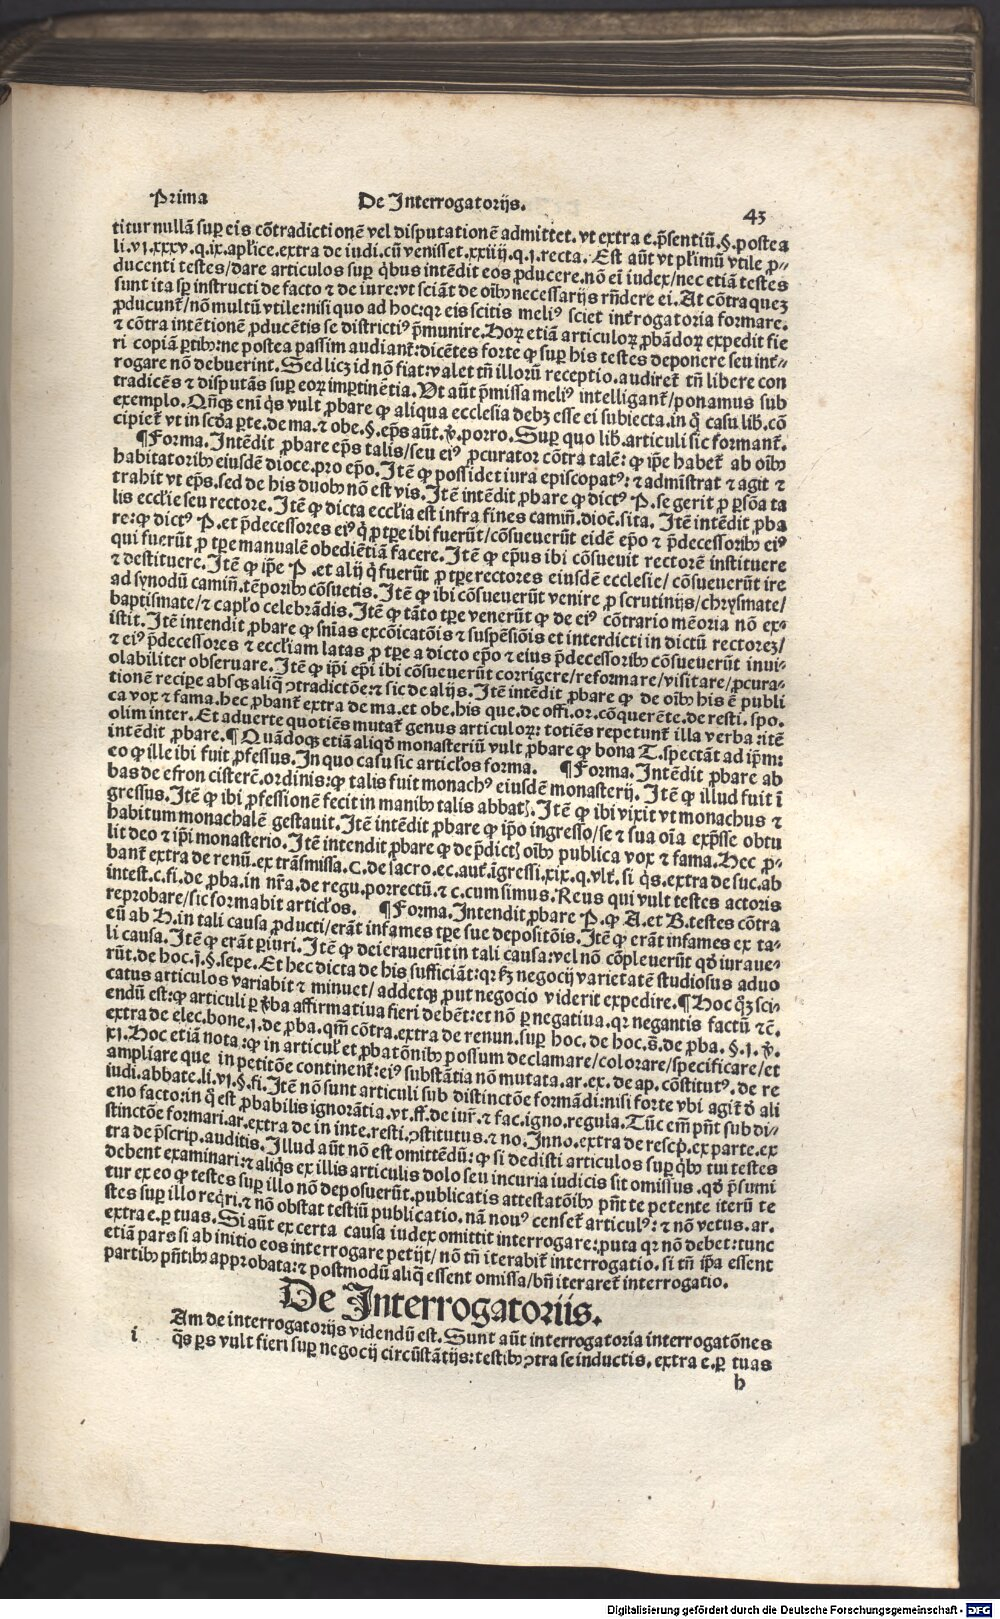 Prima De Interrogatorijs. 43
titur nullā suꝑ eis cōtradictionē vel disputationē admittet. vt extra e. p̄sentiū. §. postea
li. vj. xxxv. q. ix. apłice. extra de iudi. cū venisset. xxiiij. q. j. recta. Est aūt vt plїmū vtile ꝓ⸗
ducenti testes / dare articulos suꝑ q̇bus intēdit eos ꝓducere. nō eī iudex / nec etiā testes
sunt ita sꝑ instructi de facto ⁊ de iure: vt sciāt de oībꝰ necessarijs rn̄dere ei. At cōtra queꝫ
ꝓducunt̄ / nō multū vtile: nisi quo ad hoc: qꝛ eis scitis meliꝰ sciet int̄rogatoria formare.
⁊ cōtra intētionē ꝓducētis se districtiꝰ p̄munire. Hoꝝ etiā articuloꝝ ꝓbādoꝝ expedit fie
ri copiā ꝑtibꝰ: ne postea passim audiant̄: dicētes forte ꝙ suꝑ his testes deponere seu int̄⸗
rogare nō debuerint. Sed licꝫ id nō fiat: valet tn̄ illorū receptio. audiret̄ tn̄ libere con
tradicēs ⁊ disputās suꝑ eoꝝ imꝑtinētia. Vt aūt p̄missa meliꝰ intelligant̄ / ponamus sub
exemplo. Qn̄qꝫ enī q̇s vult ꝓbare ꝙ aliqua ecclesia debꝫ esse ei subiecta. in q̇ casu lib. cō
cipiet̄ vt in scd̄a ꝑte. de ma. ⁊ obe. §. ep̄s aūt. ꝟ. porro. Suꝑ quo lib. articuli sic formant̄.
¶ Forma. Intēdit ꝓbare ep̄s talis / seu eiꝰ ꝓcurator cōtra talē: ꝙ ip̄e habet̄ ab oībꝰ
habitatoribꝰ eiusdē dioce. pro ep̄o. Itē ꝙ possidet iura episcopatꝰ: ⁊ admīstrat ⁊ agit ⁊
trahit vt ep̄s. sed de his duobꝰ nō est vis. Itē intēdit ꝓbare ꝙ dictꝰ P. se gerit ꝓ ꝑsōa ta
lis eccłie seu rectore. Itē ꝙ dicta eccłia est infra fines camiñ. dioč. sita. Itē intēdit ꝓba
re: ꝙ dictꝰ P. et p̄decessores eiꝰ q̇ ꝓ tꝑe ibi fuerūt / cōsueuerūt eidē ep̄o ⁊ p̄decessoribꝰ eiꝰ
qui fuerūt ꝓ tꝑe manualē obediētiā facere. Itē ꝙ ep̄us ibi cōsueuit rectorē instituere
⁊ destituere. Itē ꝙ ip̄e P. et alij q̇ fuerūt ꝓ tꝑe rectores eiusdē ecclesie / cōsueuerūt ire
ad synodū camiñ. tēporibꝰ cōsuetis. Itē ꝙ ibi cōsueuerūt venire ꝓ scrutinijs / chrysmate /
baptismate / ⁊ capło celebrādis. Itē ꝙ tāto tꝑe venerūt ꝙ de eiꝰ cōtrario mēoria nō ex⸗
istit. Itē intendit ꝓbare ꝙ sn̄ias excōicatōis ⁊ suspēsiōis et interdicti in dictū rectoreꝫ /
⁊ eiꝰ p̄decessores ⁊ eccłiam latas ꝓ tꝑe a dicto ep̄o ⁊ eius p̄decessoribꝰ cōsueuerūt inui⸗
olabiliter obseruare. Itē ꝙ ip̄i ep̄i ibi cōsueuerūt corrigere / reformare / visitare / ꝓcura⸗
tionē recipe absqꝫ aliq̄ ꝯtradictōe: ⁊ sic de alijs. Itē intēdit ꝓbare ꝙ de oībꝰ his ē publi
ca vox ⁊ fama. hec ꝓbant̄ extra de ma. et obe. his que. de offi. or. cōquerēte. de resti. spo.
olim inter. Et aduerte quotiēs mutat̄ genus articuloꝝ: totiēs repetunt̄ illa verba: itē
intēdit ꝓbare. ¶ Quādoqꝫ etiā aliqd̄ monasteriū vult ꝓbare ꝙ bona T. spectāt ad ip̄m:
eo ꝙ ille ibi fuit ꝓfessus. In quo casu sic articłos forma. ¶ Forma. Intēdit ꝓbare ab
bas de efron cisterč. ordinis: ꝙ talis fuit monachꝰ eiusdē monasterij. Itē ꝙ illud fuit ī
gressus. Itē ꝙ ibi ꝓfessionē fecit in manibꝰ talis abbatꝭ. Itē ꝙ ibi vixit vt monachus ⁊
habitum monachalē gestauit. Itē intēdit ꝓbare ꝙ ip̄o ingresso / se ⁊ sua oīa exp̄sse obtu
lit deo ⁊ ip̄i monasterio. Itē intendit ꝓbare ꝙ de p̄dictꝭ oībꝰ publica vox ⁊ fama. Hec ꝓ⸗
bant̄ extra de renū. ex trāsmissa. C. de sacro. ec. aut̄. īgressi. xix. q. vlt̄. si q̇s. extra de suc. ab
intest. c. fi. de ꝓba. in nr̄a. de regu. porrectū. ⁊ c. cum simus. Reus qui vult testes actoris
reprobare / sic formabit articłos. ¶ Forma. Intendit ꝓbare P. ꝙ A. et B. testes cōtra
eū ab H. in tali causa ꝓducti / erāt infames tꝑe sue depositōis. Itē ꝙ erāt infames ex ta⸗
li causa. Itē ꝙ erāt ꝑiuri. Itē ꝙ deierauerūt in tali causa: vel nō cōpleuerūt qd̄ iuraue⸗
rūt. de hoc. j. §. sepe. Et hec dicta de his sufficiāt: qꝛ fꝫ negocij varietatē studiosus aduo
catus articulos variabit ⁊ minuet / addetqꝫ ꝓut negocio viderit expedire. ¶ Hoc q̊ꝫ sci⸗
endū est: ꝙ articuli ꝑ ꝟba affirmatiua fieri debēt: et nō ꝑ negatiua. qꝛ negantis factū ⁊c̄.
extra de elec. bone. j. de ꝓba. qm̄ cōtra. extra de renun. suꝑ hoc. de hoc. s̄. de ꝓba. §. j. ꝟ.
xj. Hoc etiā nota: ꝙ in articuł et ꝓbatōnibꝰ possum declamare / colorare / specificare / et
ampliare que in petitōe continent̄: eiꝰ substātia nō mutata. ar. ex. de ap. cōstitutꝰ. de re
iudi. abbate. li. vj. §. fi. Itē nō sunt articuli sub distinctōe formādi: nisi forte vbi agit̄ d̄ ali
eno facto: in q̇ est ꝓbabilis ignorātia. vt. ff. de iur̄. ⁊ fac. igno. regula. Tūc em̄ pn̄t sub di⸗
stinctōe formari. ar. extra de in inte. resti. ꝯstitutus. ⁊ no. Inno. extra de rescꝑ. ex parte. ex
tra de p̄scrip. auditis. Illud aūt nō est omittēdū: ꝙ si dedisti articulos suꝑ q̇bꝰ tui testes
debent examinari: ⁊ aliq̇s ex illis articulis dolo seu incuria iudicis sit omissus. qd̄ p̄sumi
tur ex eo ꝙ testes suꝑ illo nō deposuerūt. publicatis attestatōibꝰ pn̄t te petente iterū te
stes suꝑ illo req̇ri. ⁊ nō obstat testiū publicatio. nā nouꝰ censet̄ articulꝰ: ⁊ nō vetus. ar.
extra e. ꝑ tuas. Si aūt ex certa causa iudex omittit interrogare: puta qꝛ nō debet: tunc
etiā pars si ab initio eos interrogare petijt / nō tn̄ iterabit̄ interrogatio. si tn̄ ip̄a essent
partibꝰ pn̄tibꝰ approbata: ⁊ postmodū aliq̄ essent omissa / bn̄ iteraret̄ interrogatio.
De Interrogatoriis.
i Am de interrogatorijs videndū est. Sunt aūt interrogatoria interrogatōnes
q̄s ꝑs vult fieri suꝑ negocij circūstātijs: testibꝰ ꝯtra se inductis. extra e. ꝑ tuas
h
Digitalisierung gefördert durch die Deutsche Forschungsgemeinschaft - DFG